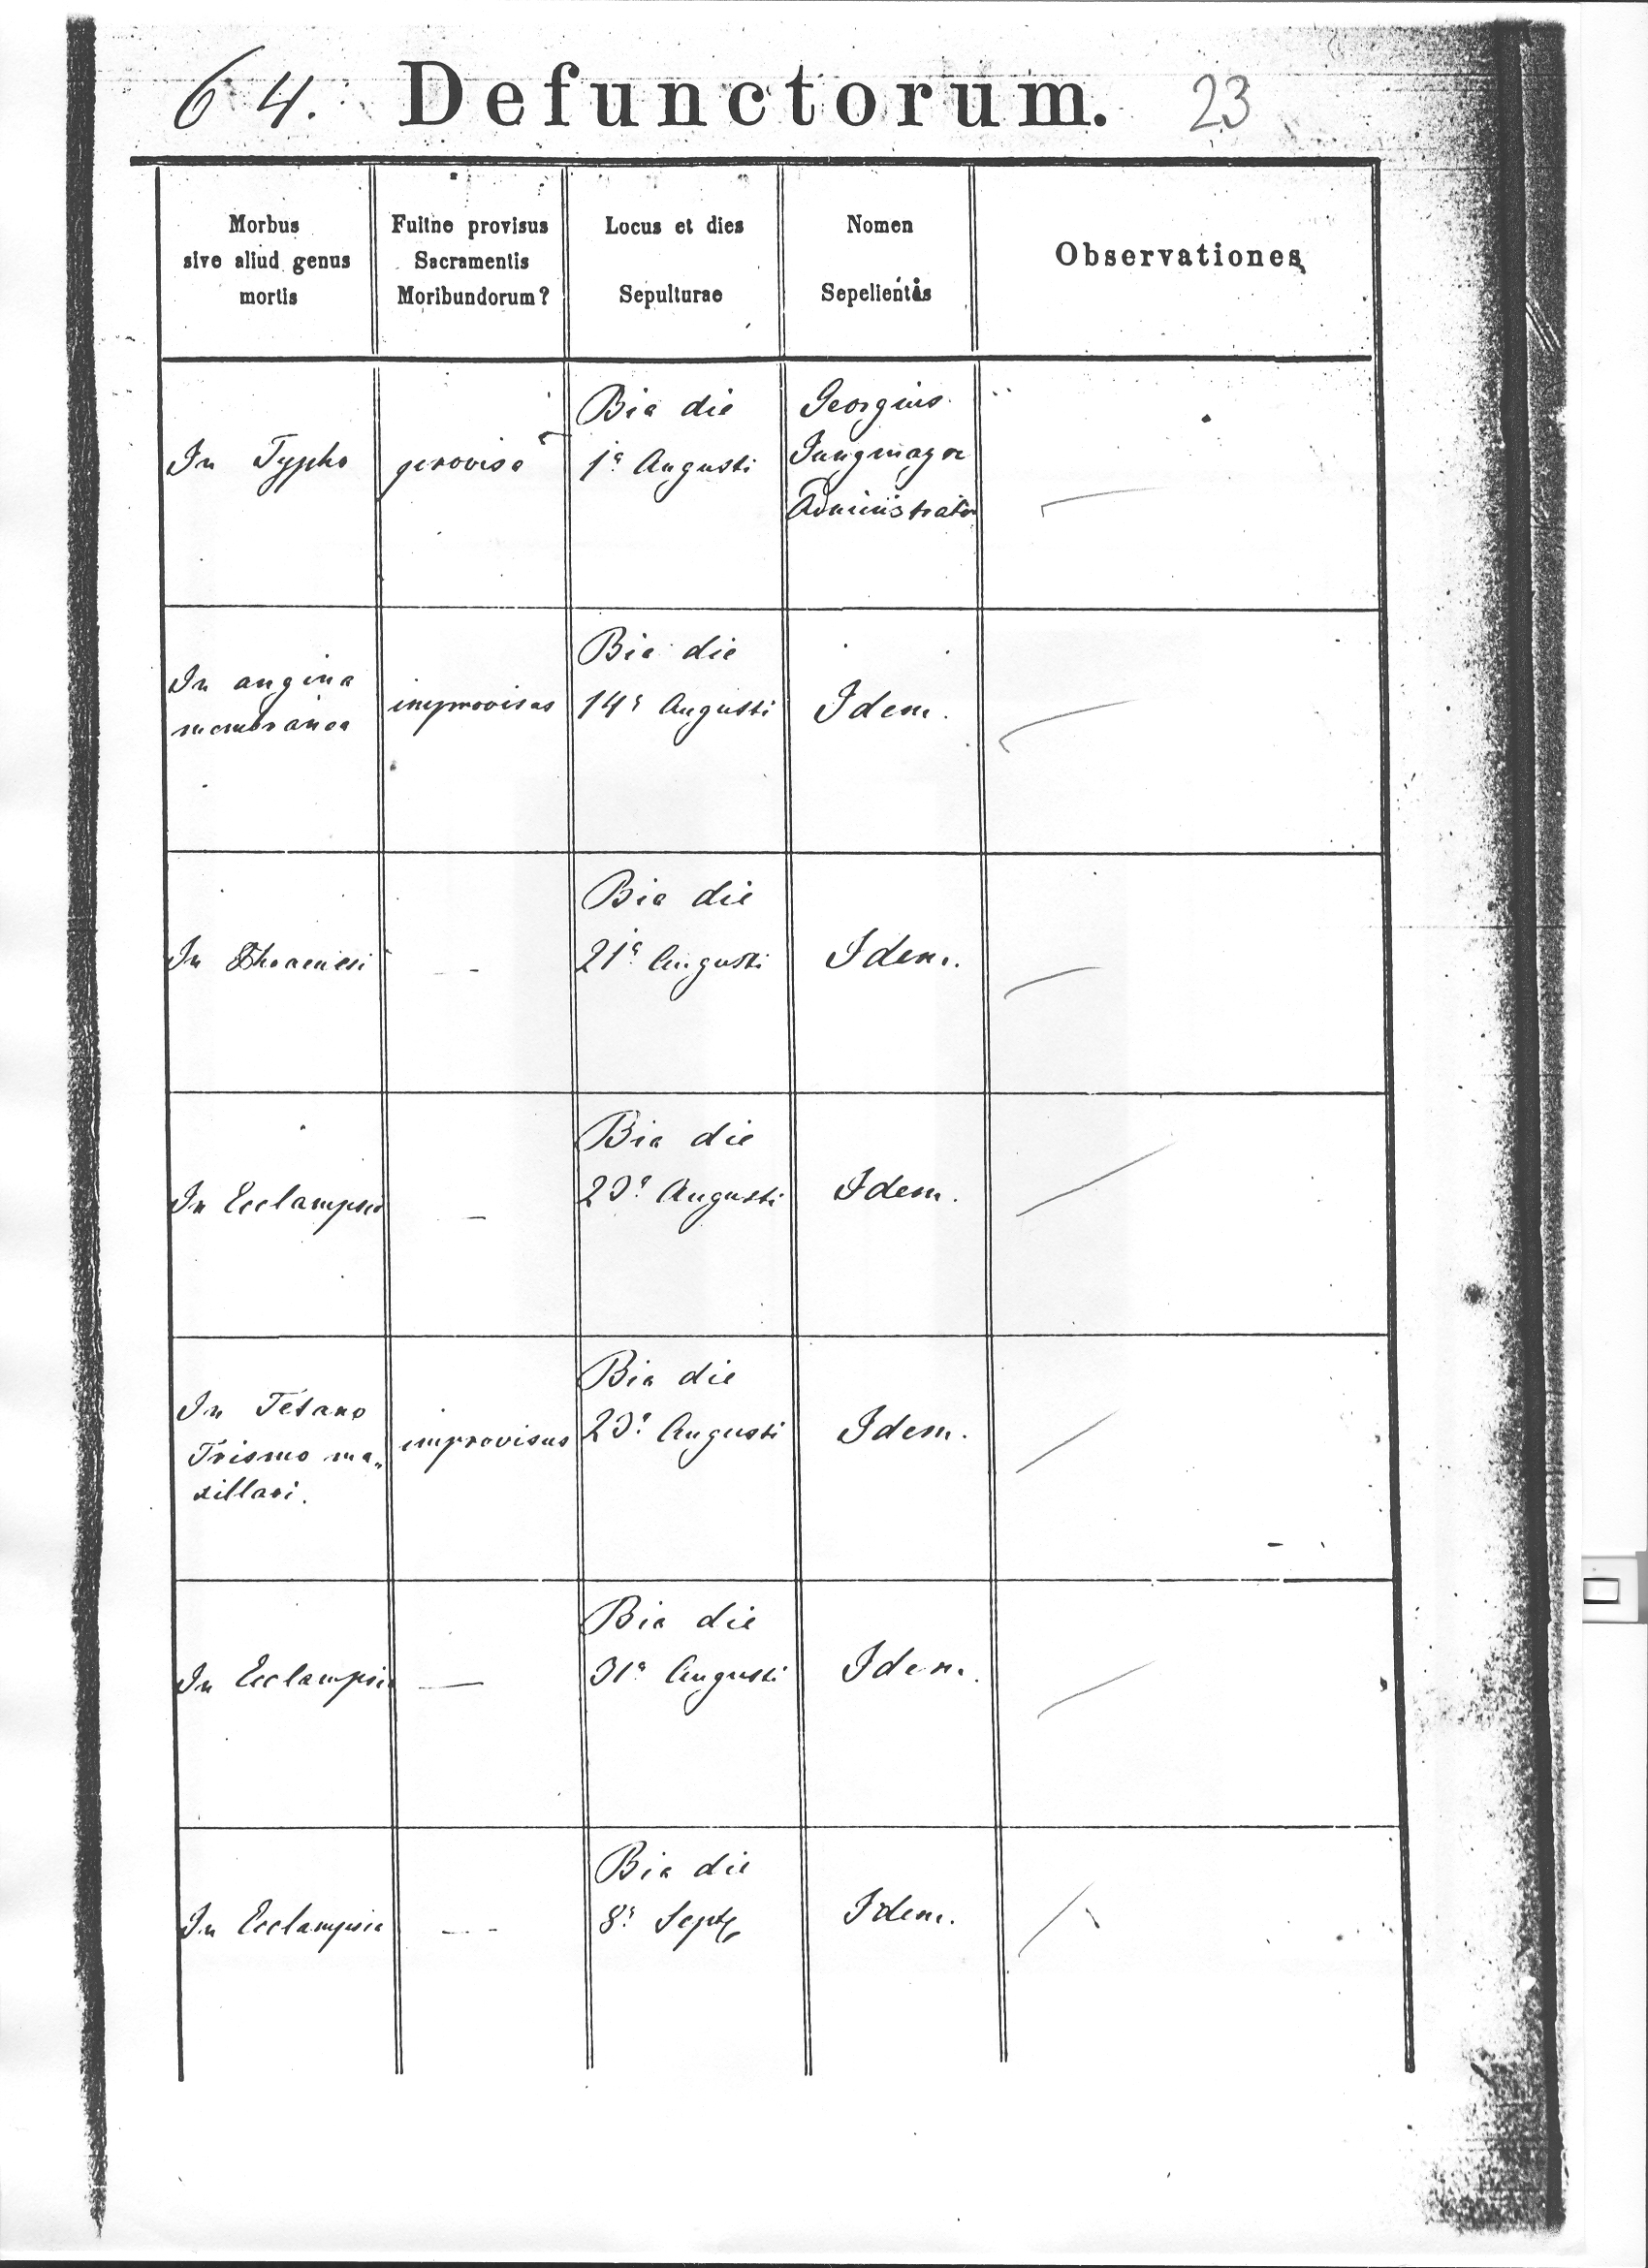 64. Defunctorum. 23
Morbus
sive aliud genus
mortis
Fuitne provisus
Sacramentis
Moribundorum?
Locus et dies
Sepulturae
Nomen
Sepelientis
Observationes
In Typho
provisa
Bia die
1ª Augusti
Georgius
Jungmayer
Administrator
In angina
membranea
improvisus
Bia die
14ª Augusti
Idem.
In
Bia die
21ª Augusti
Idem.
In Ecclampsia
Bia die
23ª Augusti
Idem.
In Tetano
Trismo ma„
xillari.
improvisus
Bia die
23ª Augusti
Idem.
In Ecclampsia
Bia die
31ª Augusti
Idem.
In Ecclampsia
Bia die
8ª Sept
Idem.